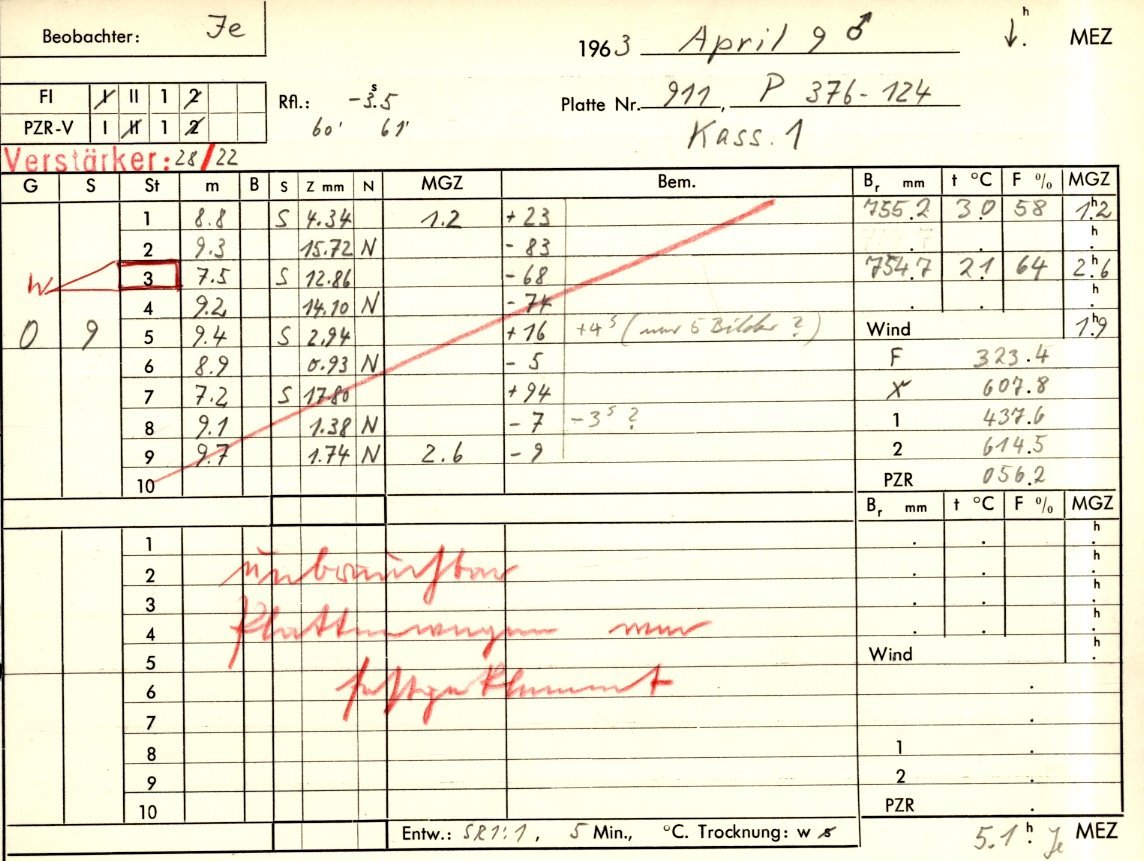 Beobachter: Je
1963 April 9 ♂ ↓. h MEZ
FI I II 1 2
PZR-V I II 1 2
Rfl.: -3.5 s
60' 61'
Platte Nr. 911, P 376-124
Kass. 1
Verstärker: 28/22
G S St m B S Z mm N MGZ Bem. Br mm t °C F % MGZ
1 8.8 S 4.34 1.2 +23 755.2 30 58 1h2
2 9.3 15.72 N - 83 . . h.
W 3 7.5 S 12.86 -68 754.7 2.1 64 2h6
4 9.2 14.10 N - 74 . . h.
0 9 5 9.4 S 2.94 +16 +4s (nur 5 Bilder?) Wind 1h9
6 8.9 0.93 N - 5 F 323.4
7 7.2 S 17.80 +94 X 607.8
8 9.1 1.38 N - 7 -3s ? 1 437.6
9 9.7 1.74 N 2.6 - 9 2 614.5
10 PZR 056.2
Br mm t °C F % MGZ
1 . . h.
2 unbrauchbar . . h.
3 . . h.
4 Plattenwagen war . . h.
5 Wind h.
6 festgeklemmt .
7 .
8 1 .
9 2 .
10 PZR .
Entw.: SR1:1, 5 Min., °C. Trocknung: w s 5.1 h. Je MEZ